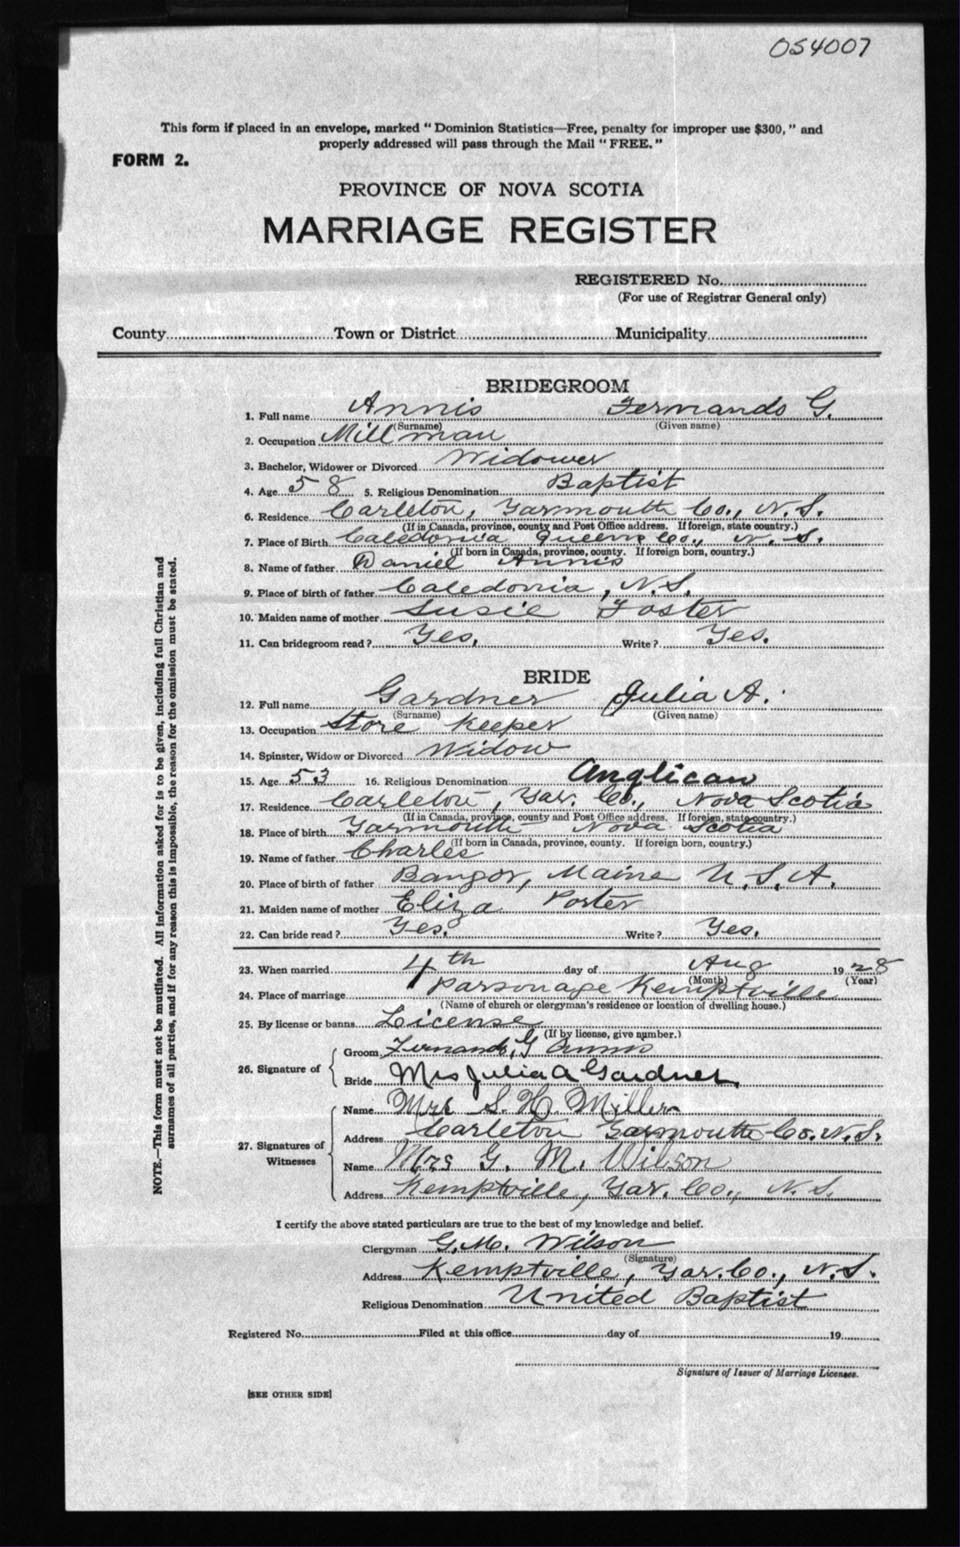 054007
This form if placed in an envelope, marked “ Dominion Statistics—Free, penalty for improper use $300, ” and
properly addressed will pass through the Mail “ FREE. ”
FORM 2.
PROVINCE OF NOVA SCOTIA
MARRIAGE REGISTER
REGISTERED No.
(For use of Registrar General only)
County Town or District Municipality
BRIDEGROOM
1. Full name Annis Fernando G.
(Surname) (Given name)
2. Occupation Mill man
3. Bachelor, Widower or Divorced Widower
4. Age 58 5. Religious Denomination Baptist
6. Residence Carleton, Yarmouth Co., N.S.
(If in Canada, province, county and Post Office address. If foreign, state country.)
7. Place of Birth Caledonia Queens Co., N.S.
(If born in Canada, province, county. If foreign born, country.)
8. Name of father Daniel Annis
9. Place of birth of father Caledonia, N.S.
10. Maiden name of mother Susie Foster
11. Can bridegroom read ? Yes. Write ? Yes.
BRIDE
12. Full name Gardner Julia A.
(Surname) (Given name)
13. Occupation Store Keeper
14. Spinster, Widow or Divorced Widow
15. Age 53 16. Religious Denomination Anglican
17. Residence Carleton, Yar. Co., Nova Scotia
(If in Canada, province, county and Post Office address. If foreign, state country.)
18. Place of birth Yarmouth Nova Scotia
(If born in Canada, province, county. If foreign born, country.)
19. Name of father Charles
20. Place of birth of father Bangor, Maine U.S.A.
21. Maiden name of mother Eliza Porter
22. Can bride read ? Yes. Write ? Yes.
23. When married 4th day of Aug 1928
(Month) (Year)
24. Place of marriage Parsonage Kemptville
(Name of church or clergyman's residence or location of dwelling house.)
25. By license or banns License
(If by license, give number.)
26. Signature of Groom Fernando G Annis
Bride Mrs Julia A Gardner
27. Signatures of Witnesses Name Mrs S. H. Miller
Address Carleton Yarmouth Co. N.S.
Name Mrs G. M. Wilson
Address Kemptville, Yar. Co., N.S.
I certify the above stated particulars are true to the best of my knowledge and belief.
Clergyman G.M. Wilson
(Signature)
Address Kemptville, Yar. Co., N.S.
Religious Denomination United Baptist
Registered No. Filed at this office day of 19
Signature of Issuer of Marriage Licenses.
[SEE OTHER SIDE]
NOTE.—This form must not be mutilated. All information asked for is to be given, including full Christian and
surnames of all parties, and if for any reason this is impossible, the reason for the omission must be stated.